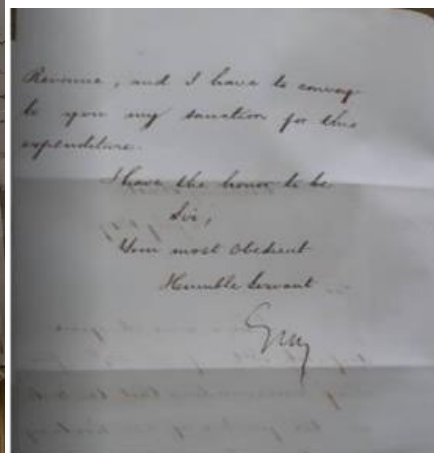 Revenue, and I have to convey
to you my sanction for this
expenditure.
I have the honor to be
Sir,
Your most Obedient
Humble Servant
Grey